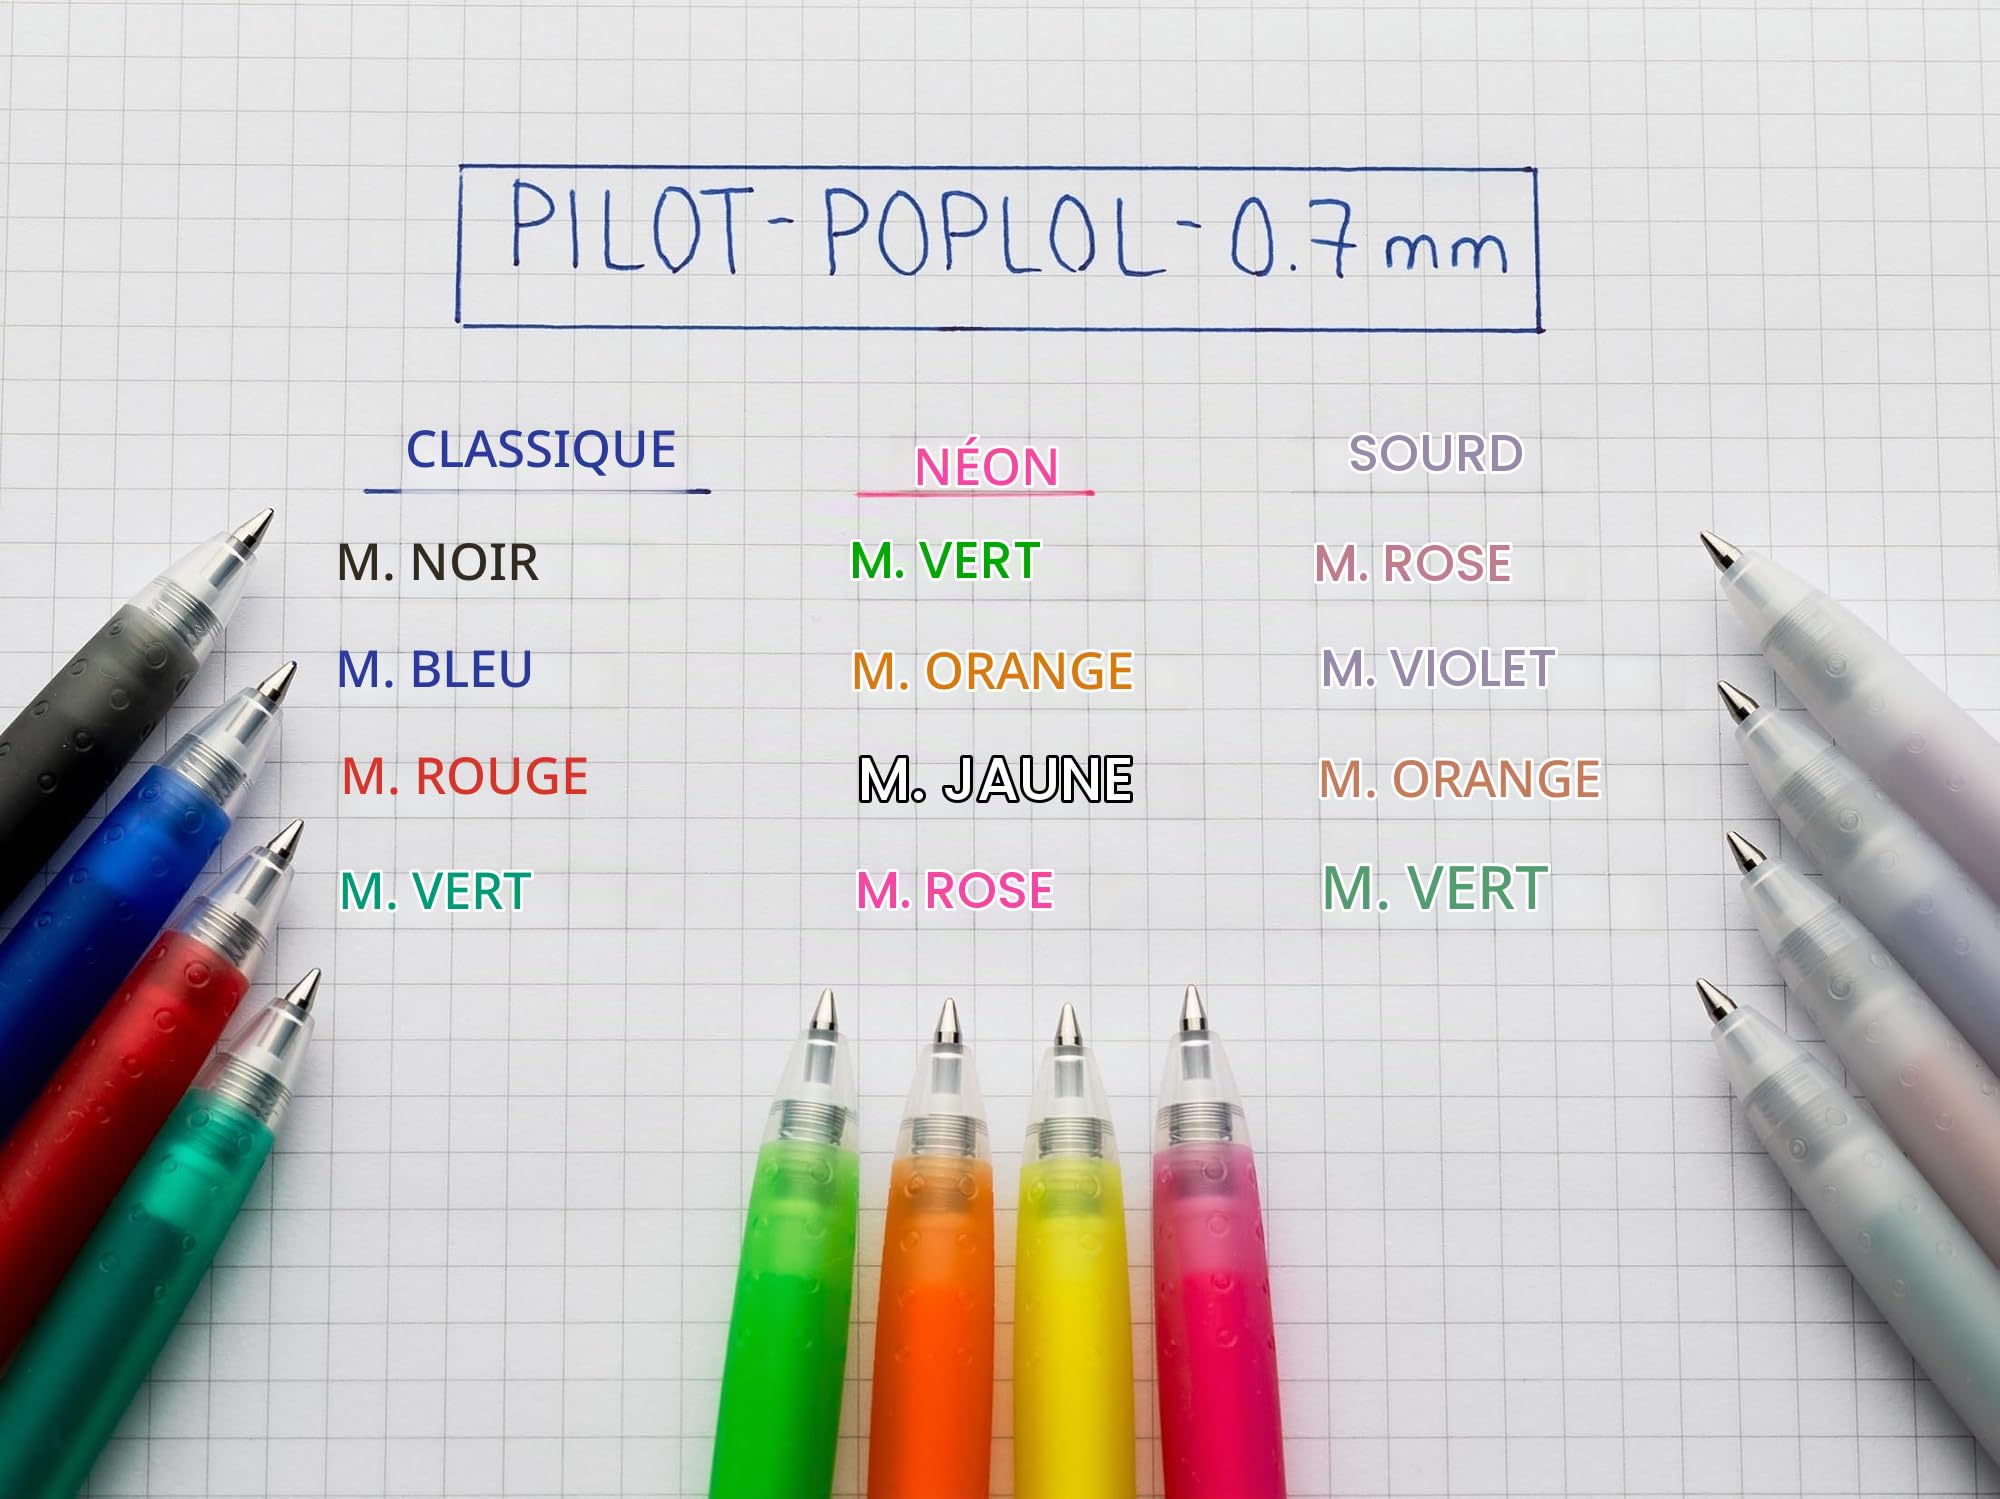 PILOT-POPLOL-0.7mm
CLASSIQUE
M. NOIR
M. BLEU
M. ROUGE
M. VERT
NÉON
M. VERT
M. ORANGE
M. JAUNE
M. ROSE
SOURD
M. ROSE
M. VIOLET
M. ORANGE
M. VERT